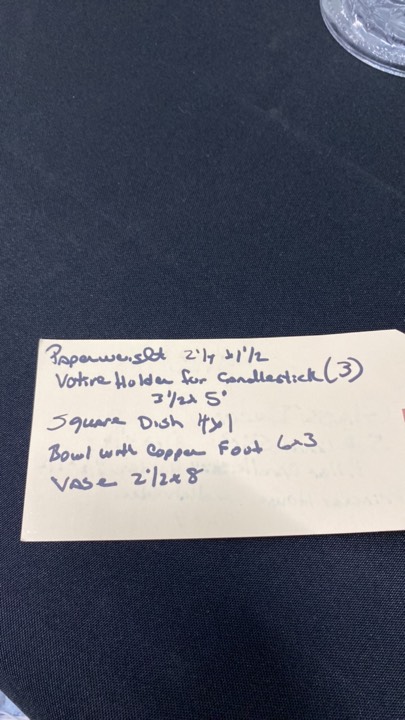 Paperweight 2 1/4 x 1 1/2
Votive Holder for Candlestick (3)
3 1/2 x 5"
Square Dish 4x1
Bowl with Copper Foot 6x3
Vase 2 1/2 x 8